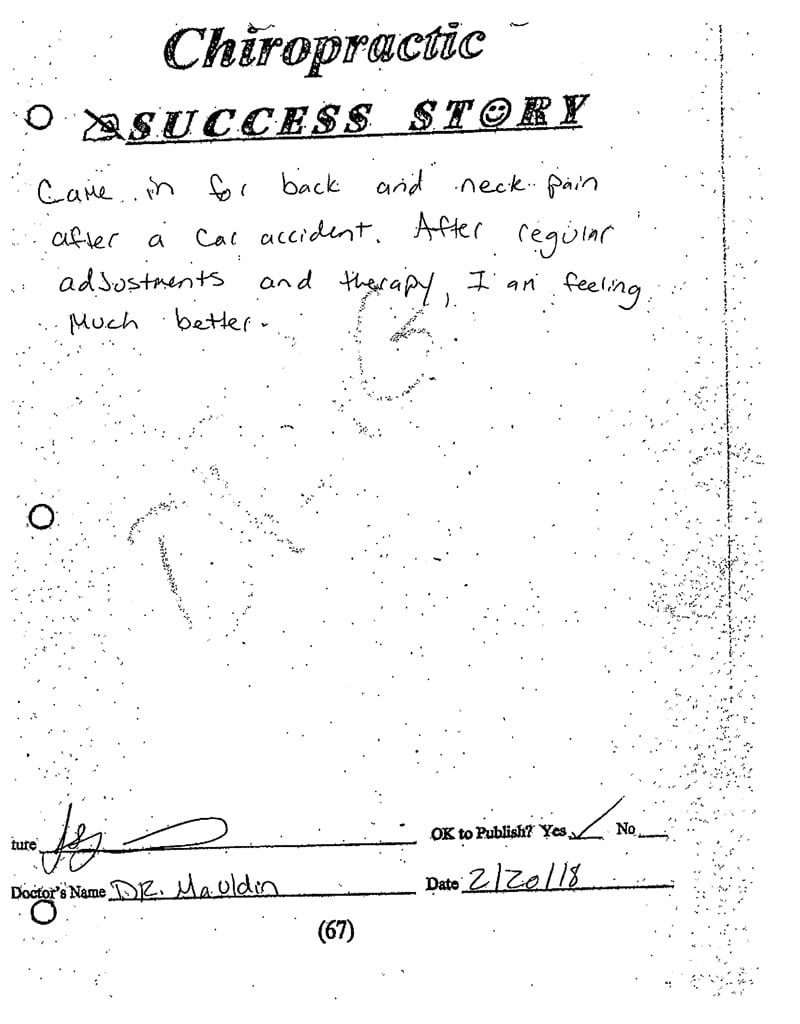 Chiropractic
SUCCESS STORY
Came in for back and neck pain
after a car accident. After regular
adjustments and therapy, I am feeling
Much better.
ture
OK to Publish? Yes ✓ No
Doctor's Name DR. Mauldin
Date 2/20/18
(67)